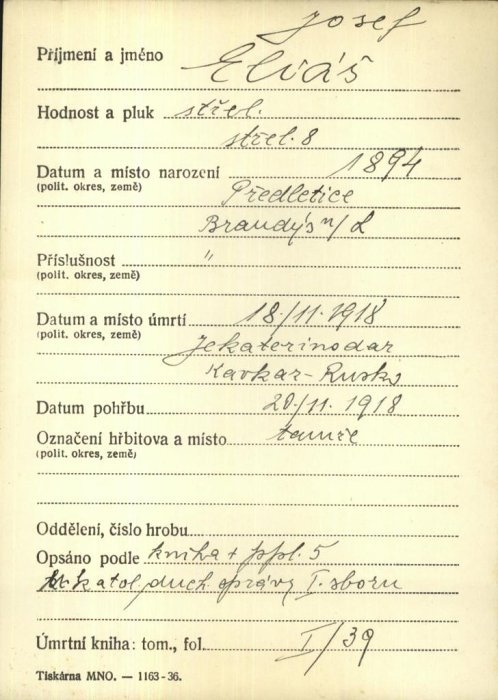 Josef
Příjmení a jméno Eliáš
Hodnost a pluk střel.
střel. 8
Datum a místo narození 1894
(polit. okres, země) Předletice
Brandýs n/L
Příslušnost "
(polit. okres, země)
Datum a místo úmrtí 18./11. 1918
(polit. okres, země) Jekaterinodar
Kavkaz-Rusko
Datum pohřbu 20/11. 1918
Označení hřbitova a místo tamže
(polit. okres, země)
Oddělení, číslo hrobu
Opsáno podle kniha + ppl. 5
katol. duch. správy I. sboru
Úmrtní kniha: tom., fol. I/39
Tiskárna MNO. — 1163-36.